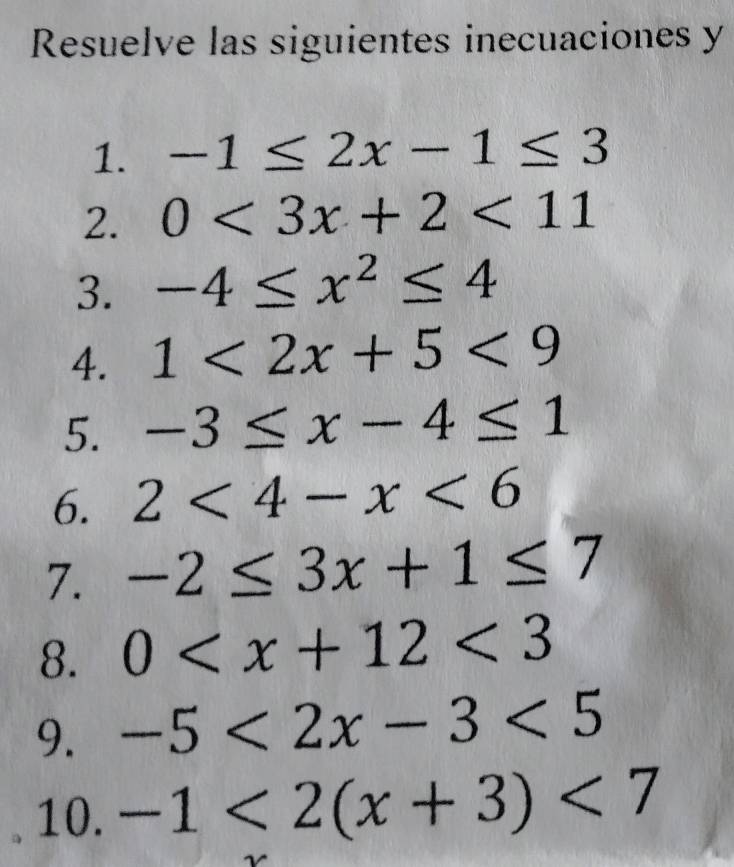 Resuelve las siguientes inecuaciones y
1. −1 ≤ 2x − 1 ≤ 3
2. 0 < 3x + 2 < 11
3. −4 ≤ x² ≤ 4
4. 1 < 2x + 5 < 9
5. −3 ≤ x − 4 ≤ 1
6. 2 < 4 − x < 6
7. −2 ≤ 3x + 1 ≤ 7
8. 0 < x + 12 < 3
9. −5 < 2x − 3 < 5
10. −1 < 2(x + 3) < 7